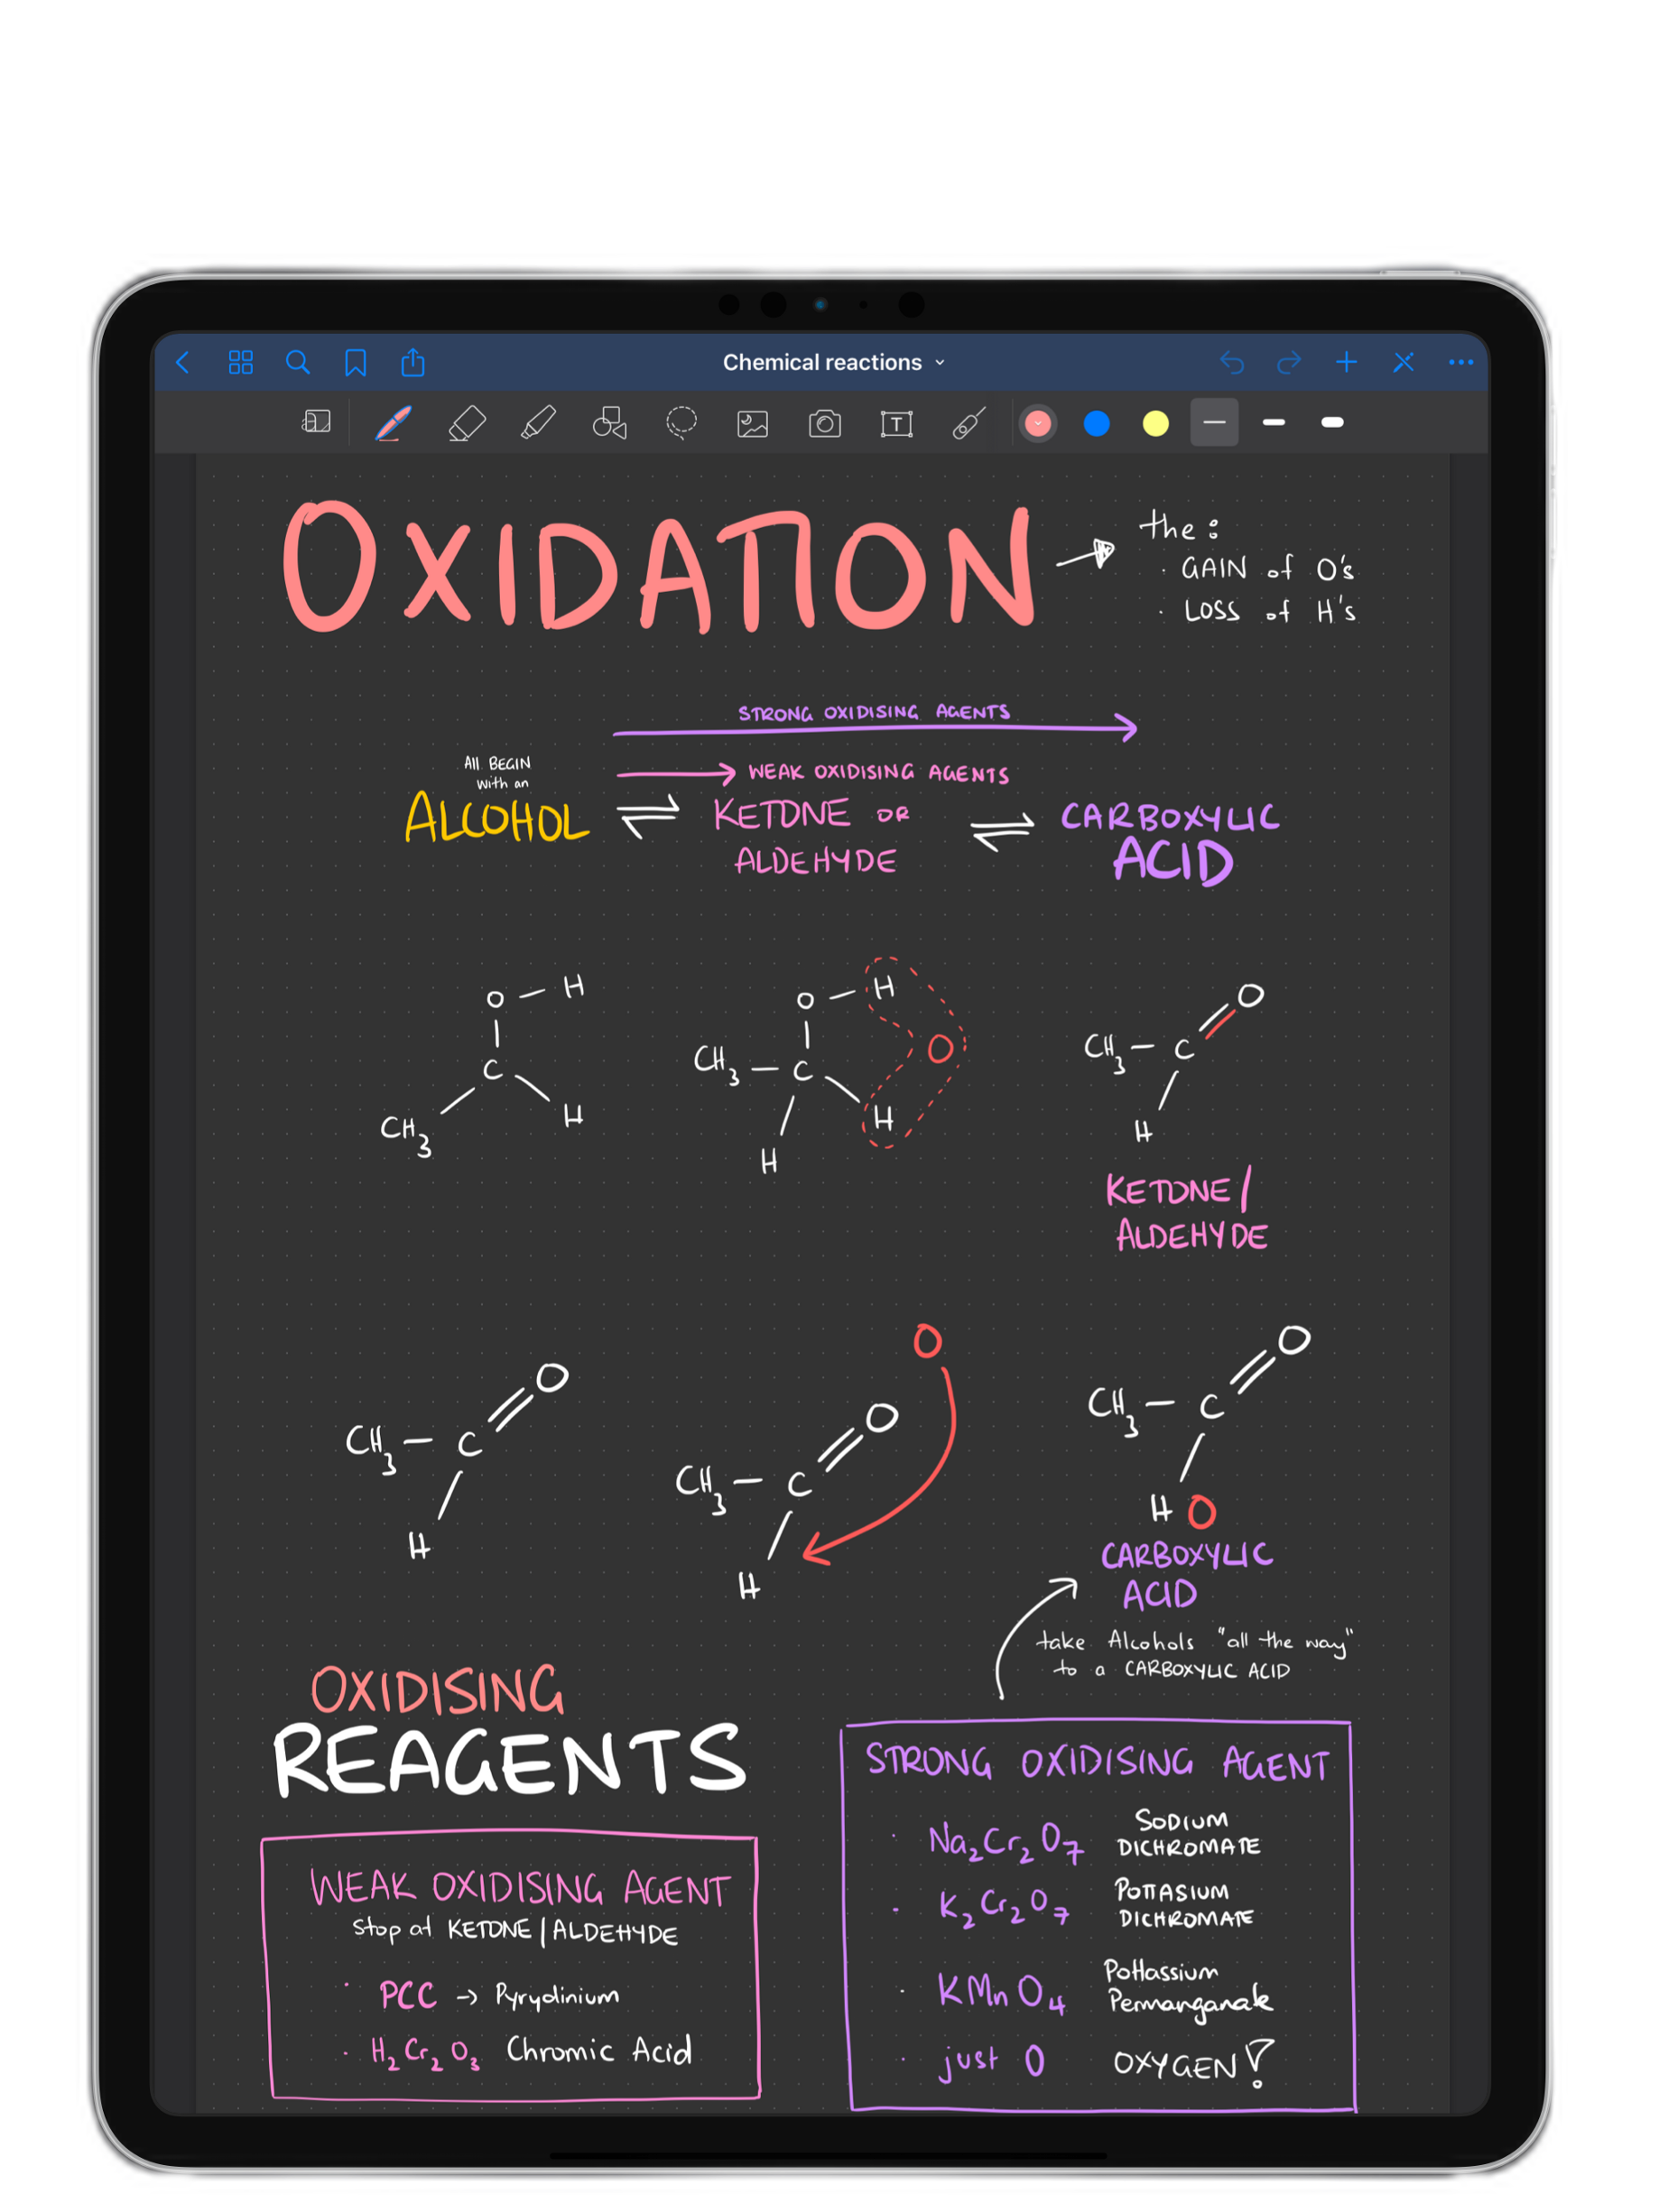 Chemical reactions
T
OXIDATION
the:
· GAIN of O's
· LOSS of H's
STRONG OXIDISING AGENTS
WEAK OXIDISING AGENTS
All BEGIN
with an
ALCOHOL ⇌ KETONE OR ⇌ CARBOXYLIC
ALDEHYDE ACID
O – H
C
CH3 H
O – H
CH3 – C O
H
H
O
CH3 – C
H
KETONE/
ALDEHYDE
O
CH3 – C
H
O
O
CH3 – C
H
O
CH3 – C
H O
CARBOXYLIC
ACID
take Alcohols "all the way"
to a CARBOXYLIC ACID
OXIDISING
REAGENTS
WEAK OXIDISING AGENT
Stop at KETONE/ALDEHYDE
· PCC → Pyrydinium
· H2Cr2O3 Chromic Acid
STRONG OXIDISING AGENT
· Na2Cr2O7 SODIUM
DICHROMATE
· K2Cr2O7 POTTASIUM
DICHROMATE
· KMnO4 Pottassium
Permanganate
· just O OXYGEN!